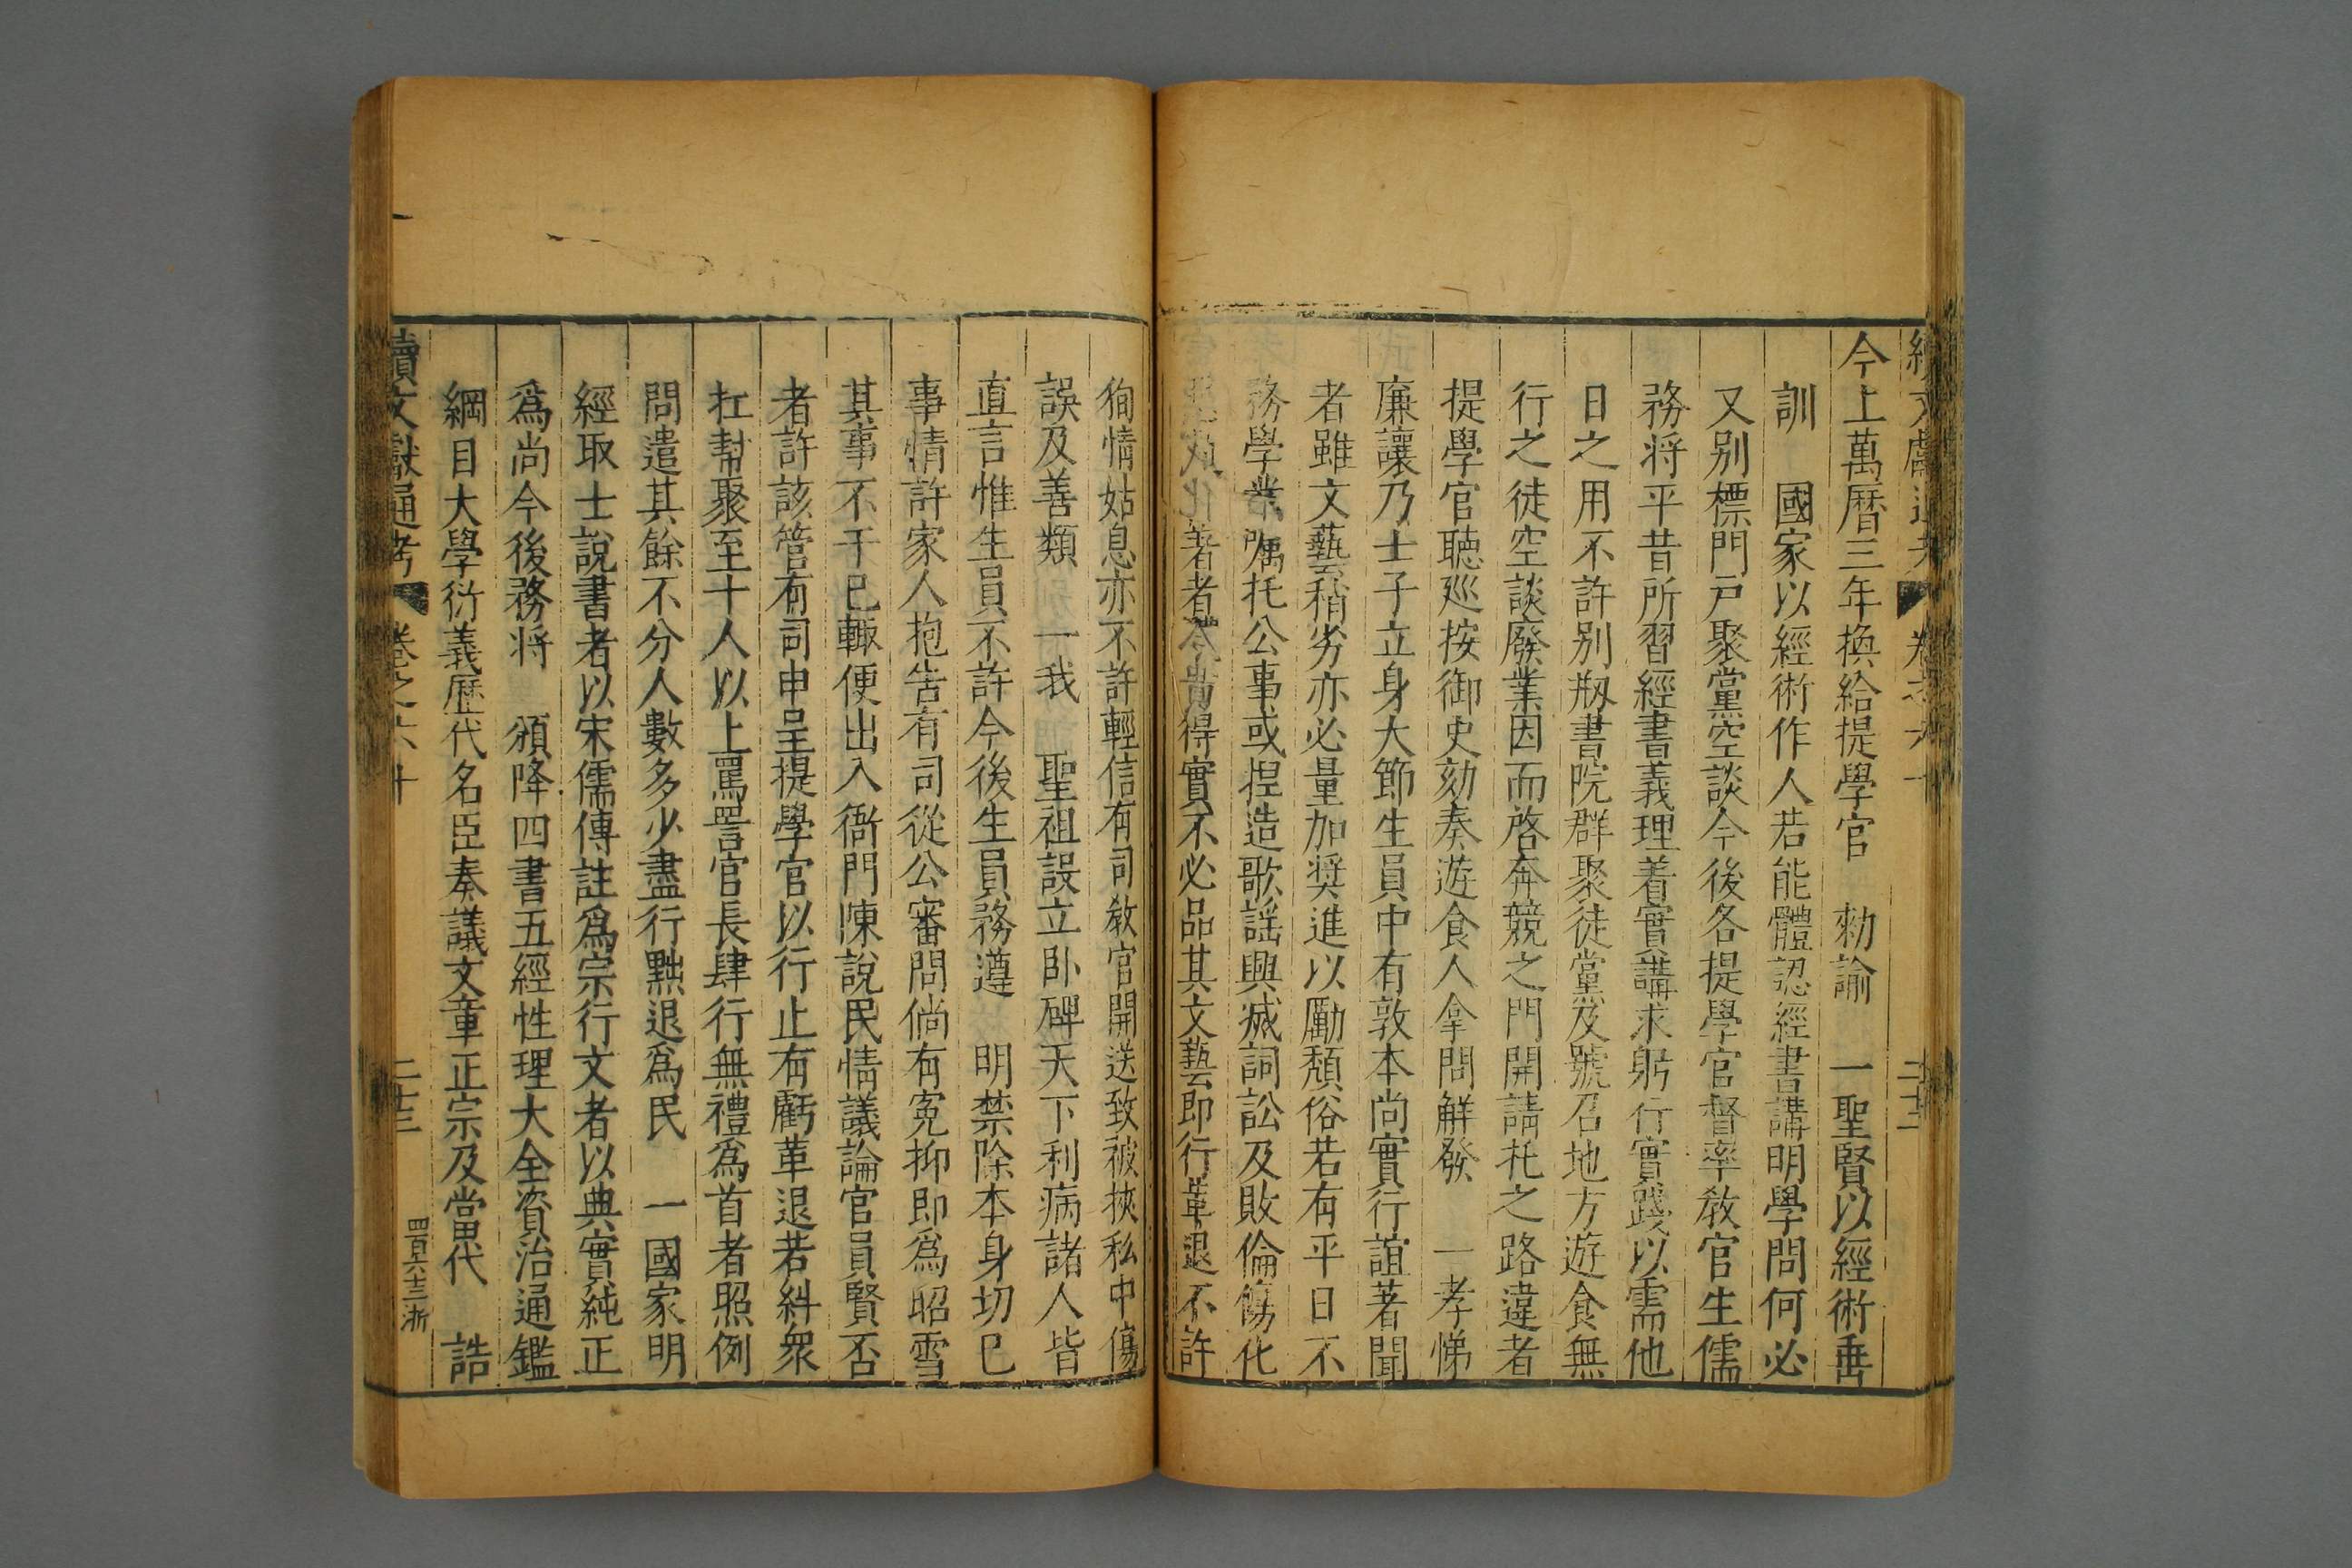 今上萬曆三年換給提學官 勑諭 一聖賢以經術垂
訓 國家以經術作人若能體認經書講明學問何必
又别標門戸聚黨空談今後各提學官督率教官生儒
務将平昔所習經書義理着實講求躬行實踐以需他
日之用不許别剏書院群聚徒黨及號召地方遊食無
行之徒空談廢業因而啓奔競之門開請托之路違者
提學官聴廵按御史劾奏遊食人拿問觧發 一孝悌
廉讓乃士子立身大節生員中有敦本尚實行誼著聞
者雖文藝稍劣亦必量加奨進以勵頹俗若有平日不
務學業嘱托公事或揑造歌謡興滅詞訟及敗倫傷化
著者 得實不必品其文藝即行革退不許
狥情姑息亦不許輕信有司教官開送致被挾私中傷
誤及善類 一我 聖祖設立卧碑天下利病諸人皆
直言惟生員不許今後生員務遵 明禁除本身切巳
事情許家人抱告有司從公審問倘有寃抑即爲昭雪
其事不干巳輙便出入衙門陳說民情議論官員賢否
者許該管有司申呈提學官以行止有虧革退若糾衆
扛幇聚至十人以上罵詈官長肆行無禮爲首者照例
問遣其餘不分人數多少盡行黜退爲民 一國家明
經取士說書者以宋儒傳註爲宗行文者以典實純正
爲尚今後務将 頒降四書五經性理大全資治通鑑
綱目大學衍義歷代名臣奏議文章正宗及當代 誥
續文獻通考 卷之六十 二十三
四百六十三 浙